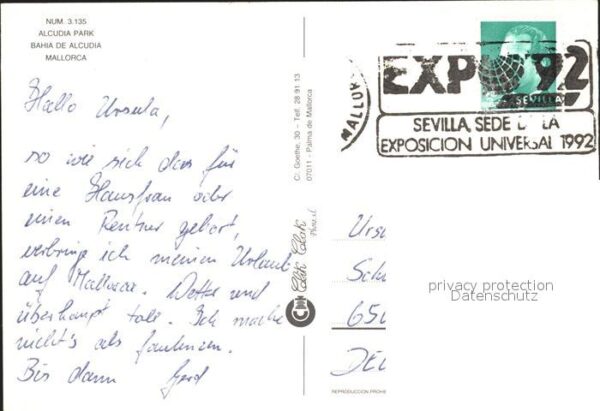 NUM. 3.135
ALCUDIA PARK
BAHIA DE ALCUDIA
MALLORCA
Hallo Ursula,
so wie sich das für
eine Hausfrau oder
einen Rentner gehört,
verbringe ich meinen Urlaub
auf Mallorca. Wetter und
überhaupt toll. Ich mache
nicht's als faulenzen.
Bis dann Gerd
C/. Goethe, 30 – Telf. 28 91 13
07011 - Palma de Mallorca
Clik Clak
REPRODUCCION PROHIB
EXPO '92
SEVILLA
SEVILLA, SEDE DE LA
EXPOSICION UNIVERSAL 1992
MALLOR
Ursu
Sch
650
DEU
privacy protection
Datenschutz